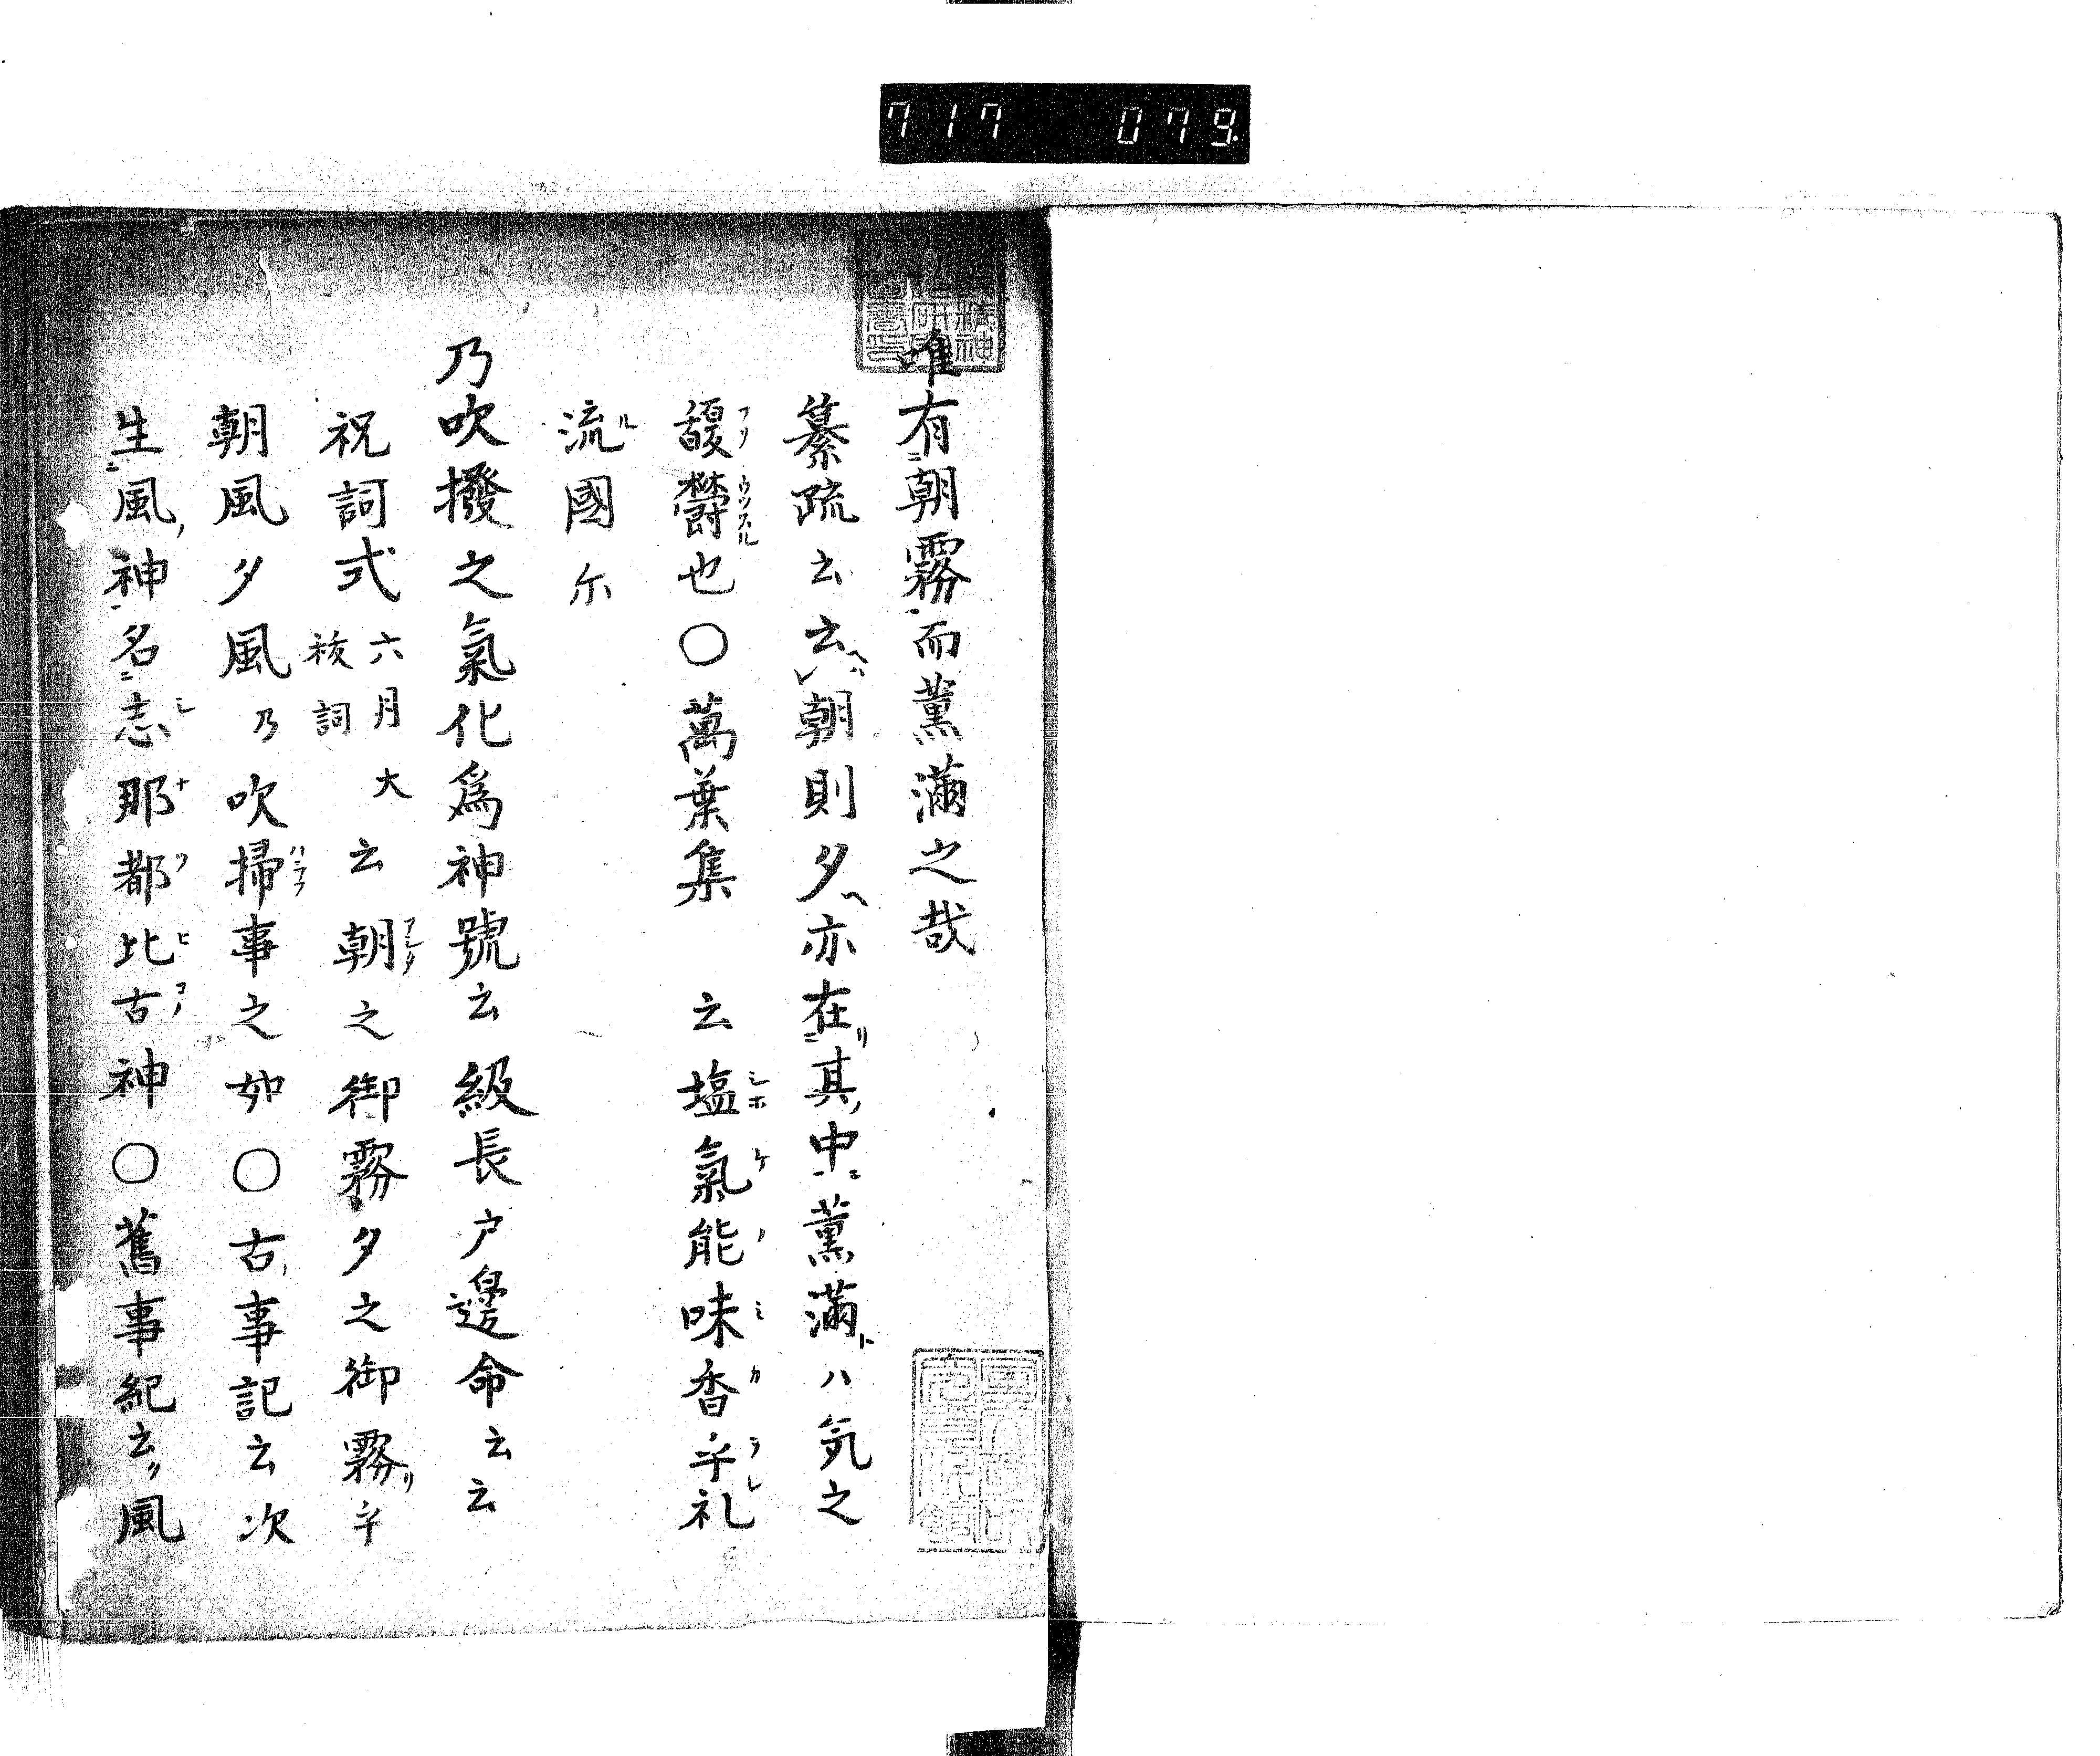 717 079
唯有朝霧而薫滿之哉
纂疏云云朝則夕亦在其中薫滿ハ気之
馥欝也〇萬葉集 云塩氣能味香乎礼
流國尓
乃吹撥之氣化爲神號云級長户邊命云云
祝詞式六月大祓詞云朝之御霧夕之御霧乎
朝風夕風乃吹掃事之如〇古事記云次
生風神名志那都比古神〇舊事紀云風